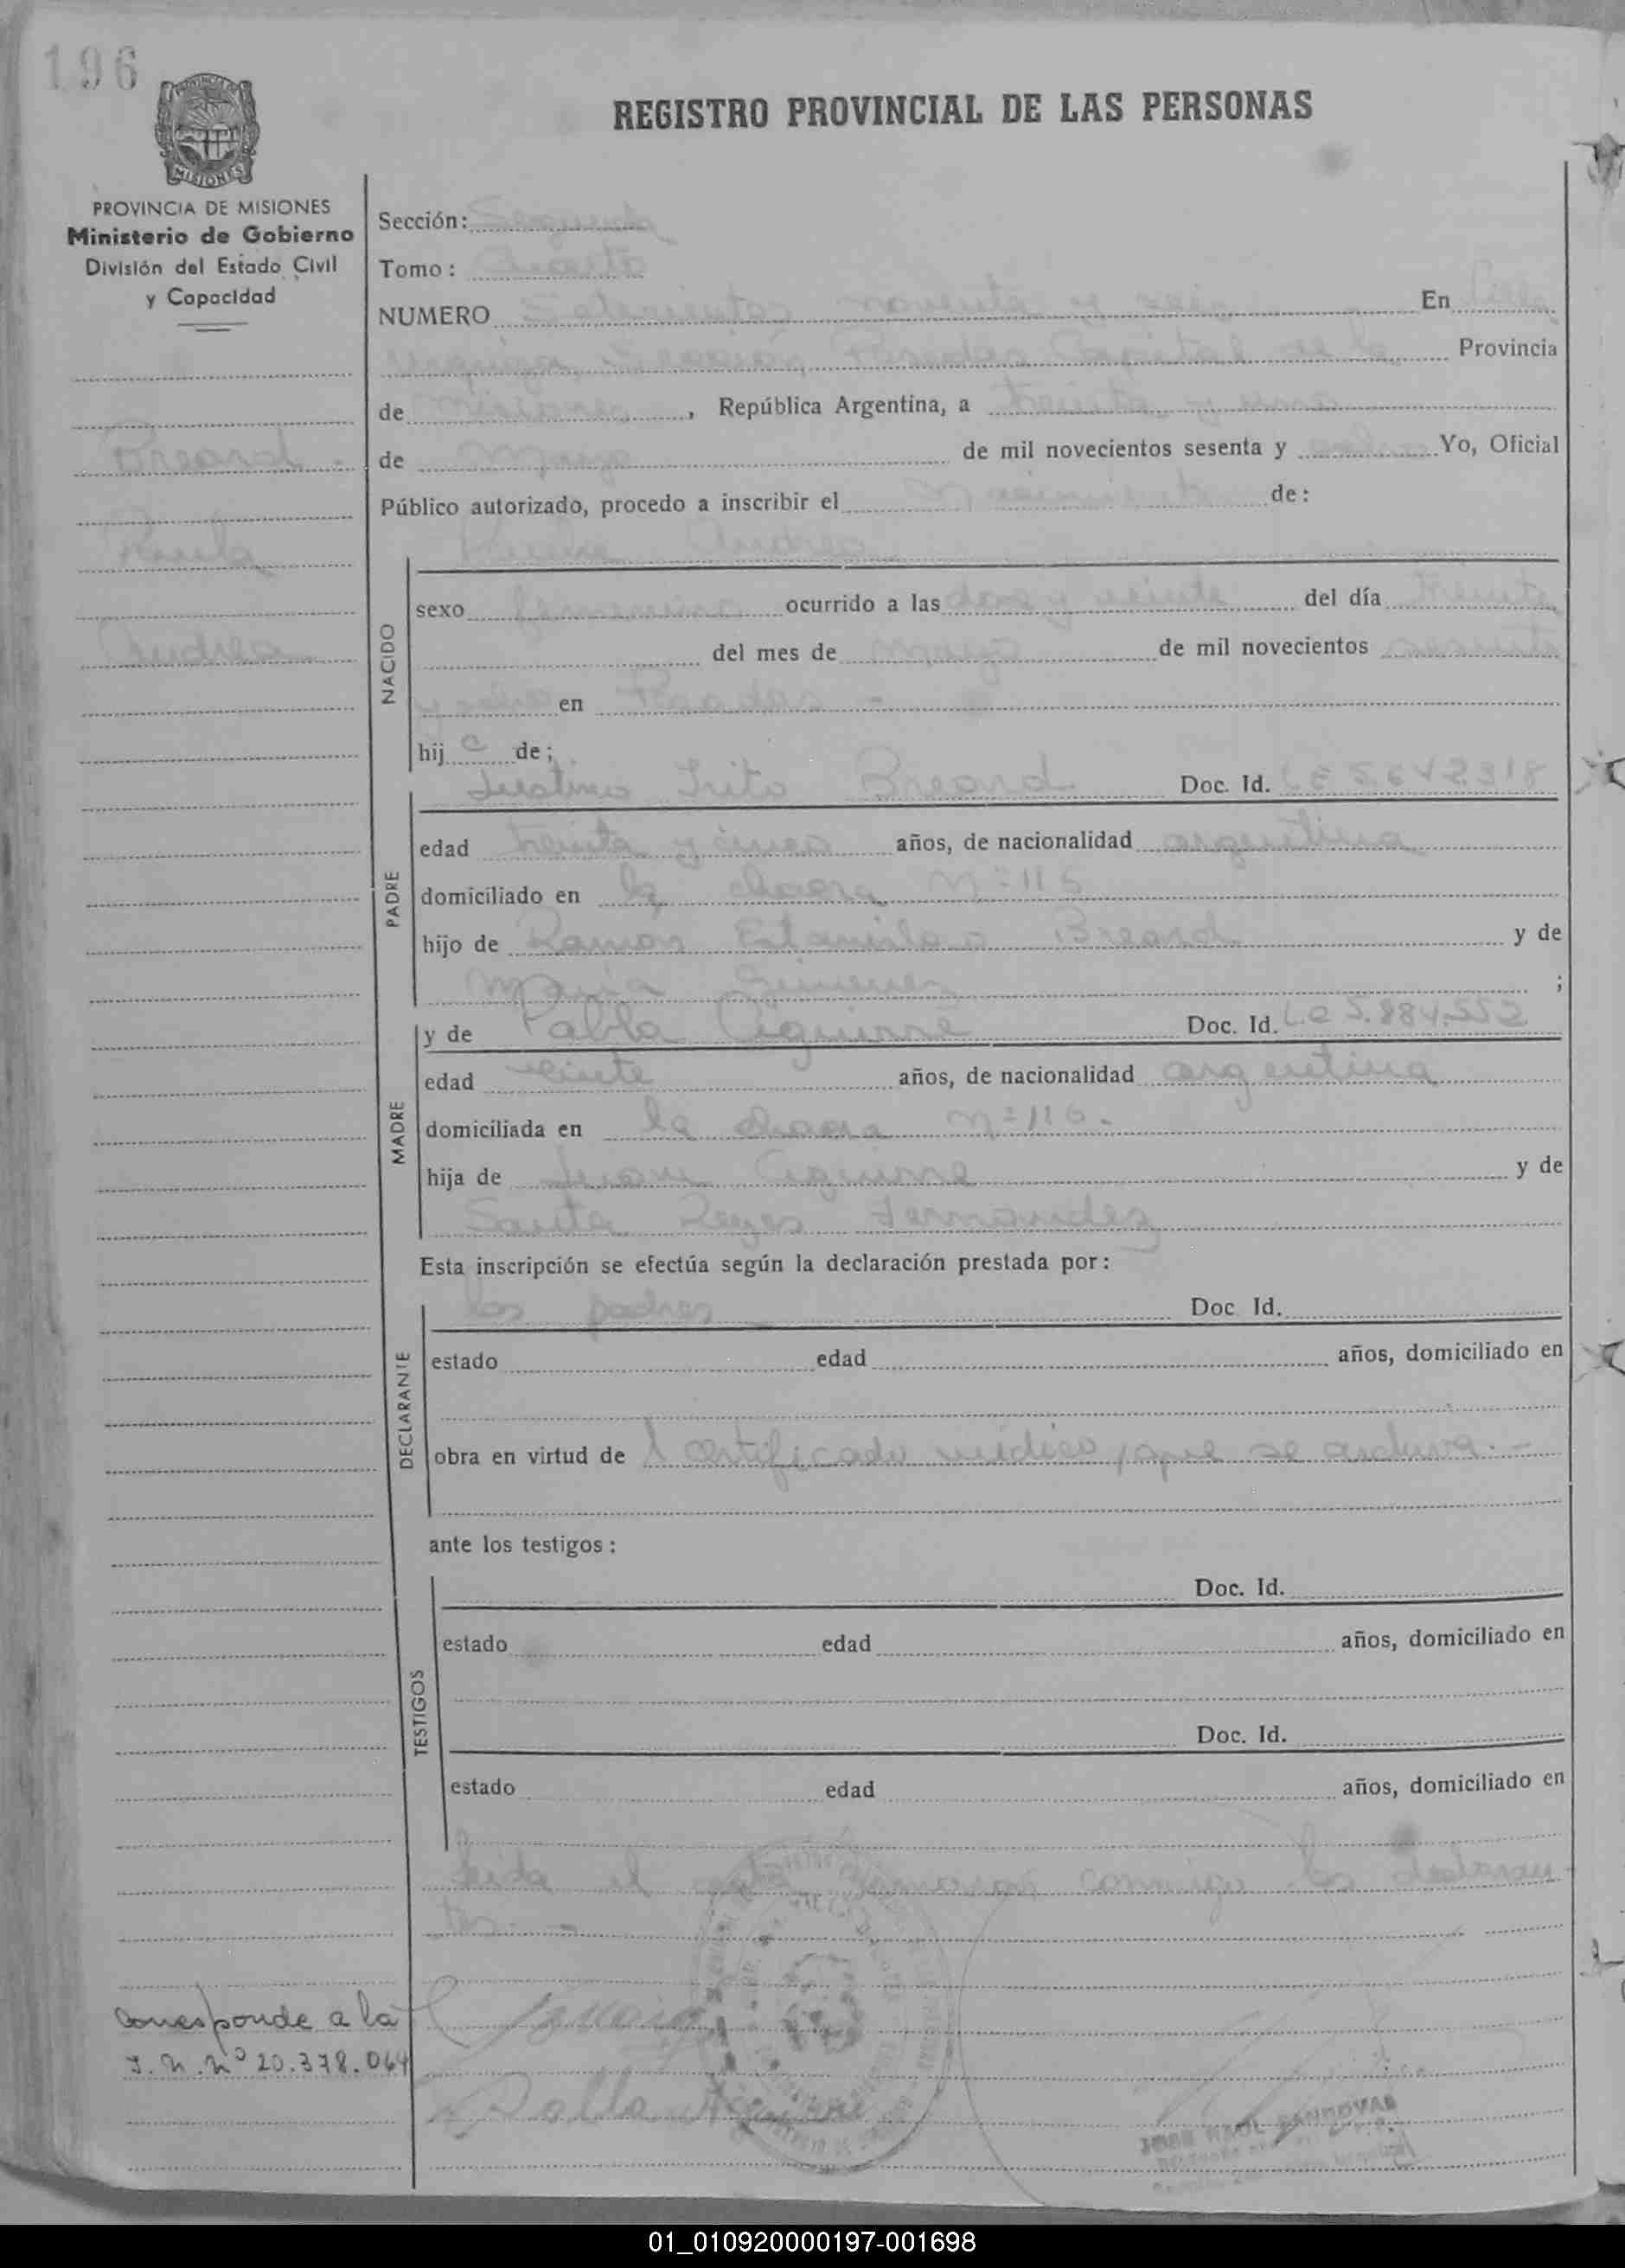 196
REGISTRO PROVINCIAL DE LAS PERSONAS
PROVINCIA DE MISIONES
Ministerio de Gobierno
División del Estado Civil
y Capacidad
Breard -
Paula
Andrea
Sección: Segunda
Tomo: Cuarto
NUMERO noventa y seis En Villa
Urquiza, Sección, Posadas Capital de la Provincia
de Misiones, República Argentina, a treinta y uno
de Mayo de mil novecientos sesenta y ocho Yo, Oficial
Público autorizado, procedo a inscribir el Nacimiento de:
NACIDO
Andrea
sexo femenino ocurrido a las doce y veinte del día treinta
del mes de mayo de mil novecientos sesenta
y ocho en Posadas -
hij a de;
PADRE
Justino Tito Breard Doc. Id.
edad treinta y cinco años, de nacionalidad argentina
domiciliado en la chacra Nº 116
hijo de Ramon Estanislao Breard y de
Maria Gimenez ;
MADRE
y de Pabla Aguirre Doc. Id. L.C 5.884.552
edad veinte años, de nacionalidad argentina
domiciliada en la chacra Nº 116.
hija de Juan Aguirre y de
Santa Reyes Fernandez
Esta inscripción se efectúa según la declaración prestada por:
DECLARANTE
los padres Doc. Id.
estado edad años, domiciliado en
obra en virtud de l certificado médico, que se archiva. -
ante los testigos:
TESTIGOS
Doc. Id.
estado edad años, domiciliado en
Doc. Id.
estado edad años, domiciliado en
Leida el acta firmaron conmigo los declaran-
tes. -
Corresponde a la
I.N. Nº 20.378.064
Pabla Aguirre
JOSE RAUL SANDOVAL
01_010920000197-001698